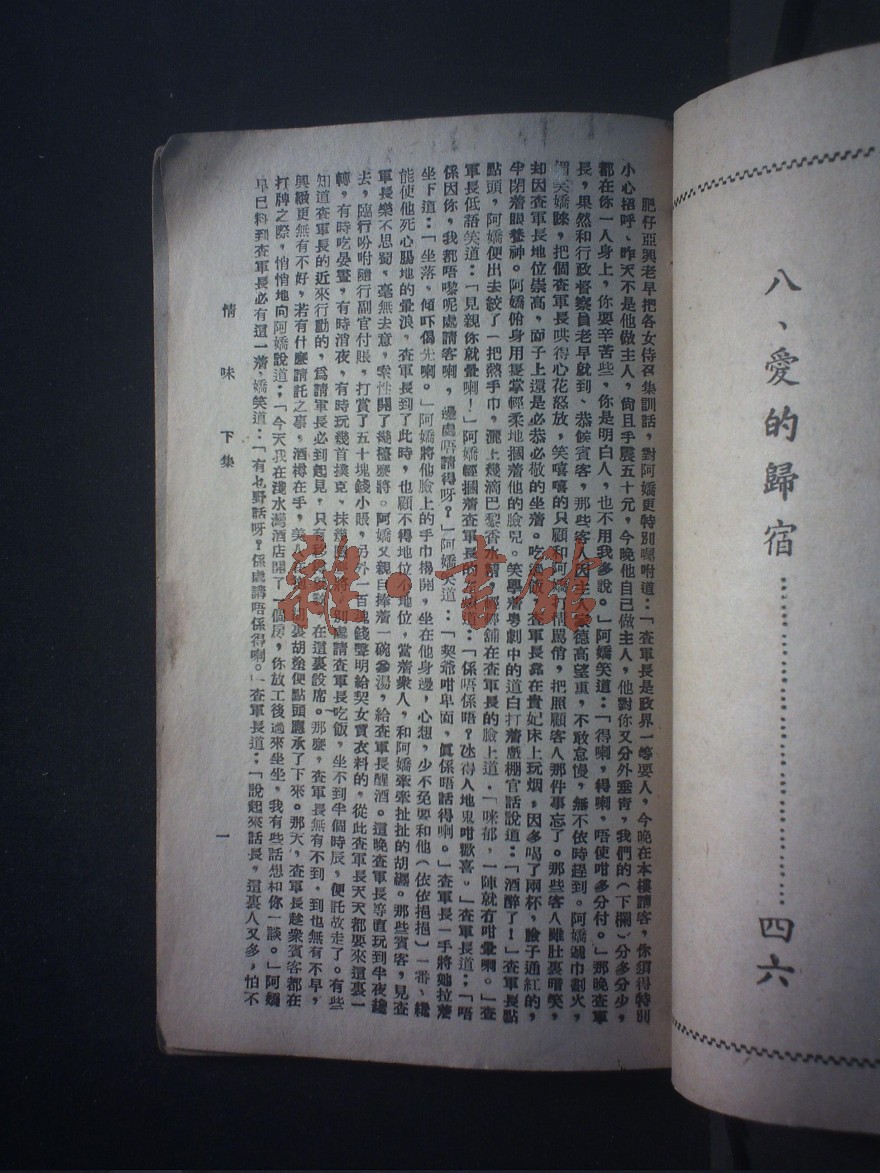 八、愛的歸宿……………………四六
肥仔亞興老早把各女侍召集訓話，對阿嬌更特別囑咐道：「查軍長是政界一等要人，今晚在本樓請客，你須得特別
小心招呼、昨天不是他做主人，尙且手震五十元，今晚他自己做主人，他對你又分外垂靑，我們的（下欄）分多分少，
都在你一人身上，你要辛苦些，你是明白人，也不用我多說。」阿嬌笑道：「得喇，得喇，唔使咁多分付。」那晚查軍
長，果然和行政督察員老早就到、恭候賓客，那些客人因主人德高望重，不敢怠慢，無不依時趕到。阿嬌遞巾劃火，
媚笑嬌睐，把個查軍長哄得心花怒放，笑嘻嘻的只顧和阿嬌打情罵俏，把照顧客人那件事忘了。那些客人雖肚裏暗笑，
却因查軍長地位崇高，面子上還是必恭必敬的坐着。吃完飯，查軍長靠在貴妃床上玩烟，因多喝了兩杯，臉子通紅的，
半閉着眼養神。阿嬌俯身用玉掌輕柔地摑着他的臉兒。笑學着粤劇中的道白打着戲棚官話說道：「酒醉了！」查軍長點
點頭，阿嬌便出去絞了一把熱手巾，灑上幾滴巴黎香水精，鋪在查軍長的臉上道．「咪郁，一陣就冇咁暈喇。」查
軍長低語笑道：「見親你就暈喇！」阿嬌輕摑着查軍長的道：「係唔係唔？氹得人地鬼咁歡喜。」查軍長道；「唔
係因你，我都唔嚟呢處請客喇，邊處唔請得呀？」阿嬌笑道：「契爺咁畀面，眞係唔話得喇。」查軍長一手將她拉着
坐下道：「坐落，傾吓偈先喇。」阿嬌將他臉上的手巾揭開，坐在他身邊，心想，少不免要和他（依依挹挹）一番、纔
能使他死心腸地的暈浪，查軍長到了此時，也顧不得地位不地位，當着衆人，和阿嬌牽牽扯扯的胡纒。那些賓客，見查
軍長樂不思蜀，毫無去意，索性開了幾檯麻將。阿嬌又親自捧着一碗參湯，給查軍長醒酒。這晚查軍長等直玩到半夜纔
去，臨行吩咐隨行副官付賬，打賞了五十塊錢小賬，另外一百塊錢聲明給契女買衣料的，從此查軍長天天都要來這裏一
轉，有時吃晏晝，有時消夜，有時玩幾首撲克、抹幾圈麻將，別處請查軍長吃飯，坐不到半個時辰，便託故走了。有些
知道查軍長的近來行動的，爲請軍長必到起見，只有在這裏設席。那麽，查軍長無有不到．到也無有不早，
興緻更無有不好，若有什麽請託之事，酒樽在手，美人在抱，胡塗便點頭應承了下來。那天，查軍長趁衆賓客都在
打牌之際，悄悄地向阿嬌說道；「今天我在淺水灣酒店開了一個房，你放工後過來坐坐，我有些話想和你一談。」阿嬌
早已料到查軍長必有這一着，嬌笑道：「有乜野話呀？係處講唔係得喇。」查軍長道：「說起來話長，這裏人又多，怕不
情味　下集　　一
雜·書館